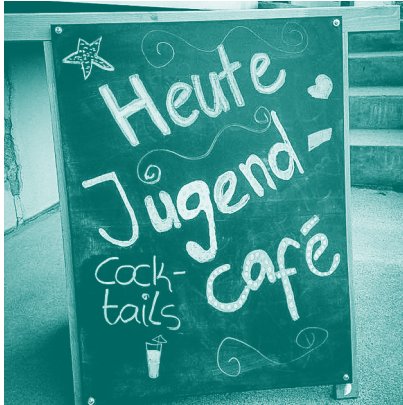 Heute
Jugend-
café
Cock-
tails